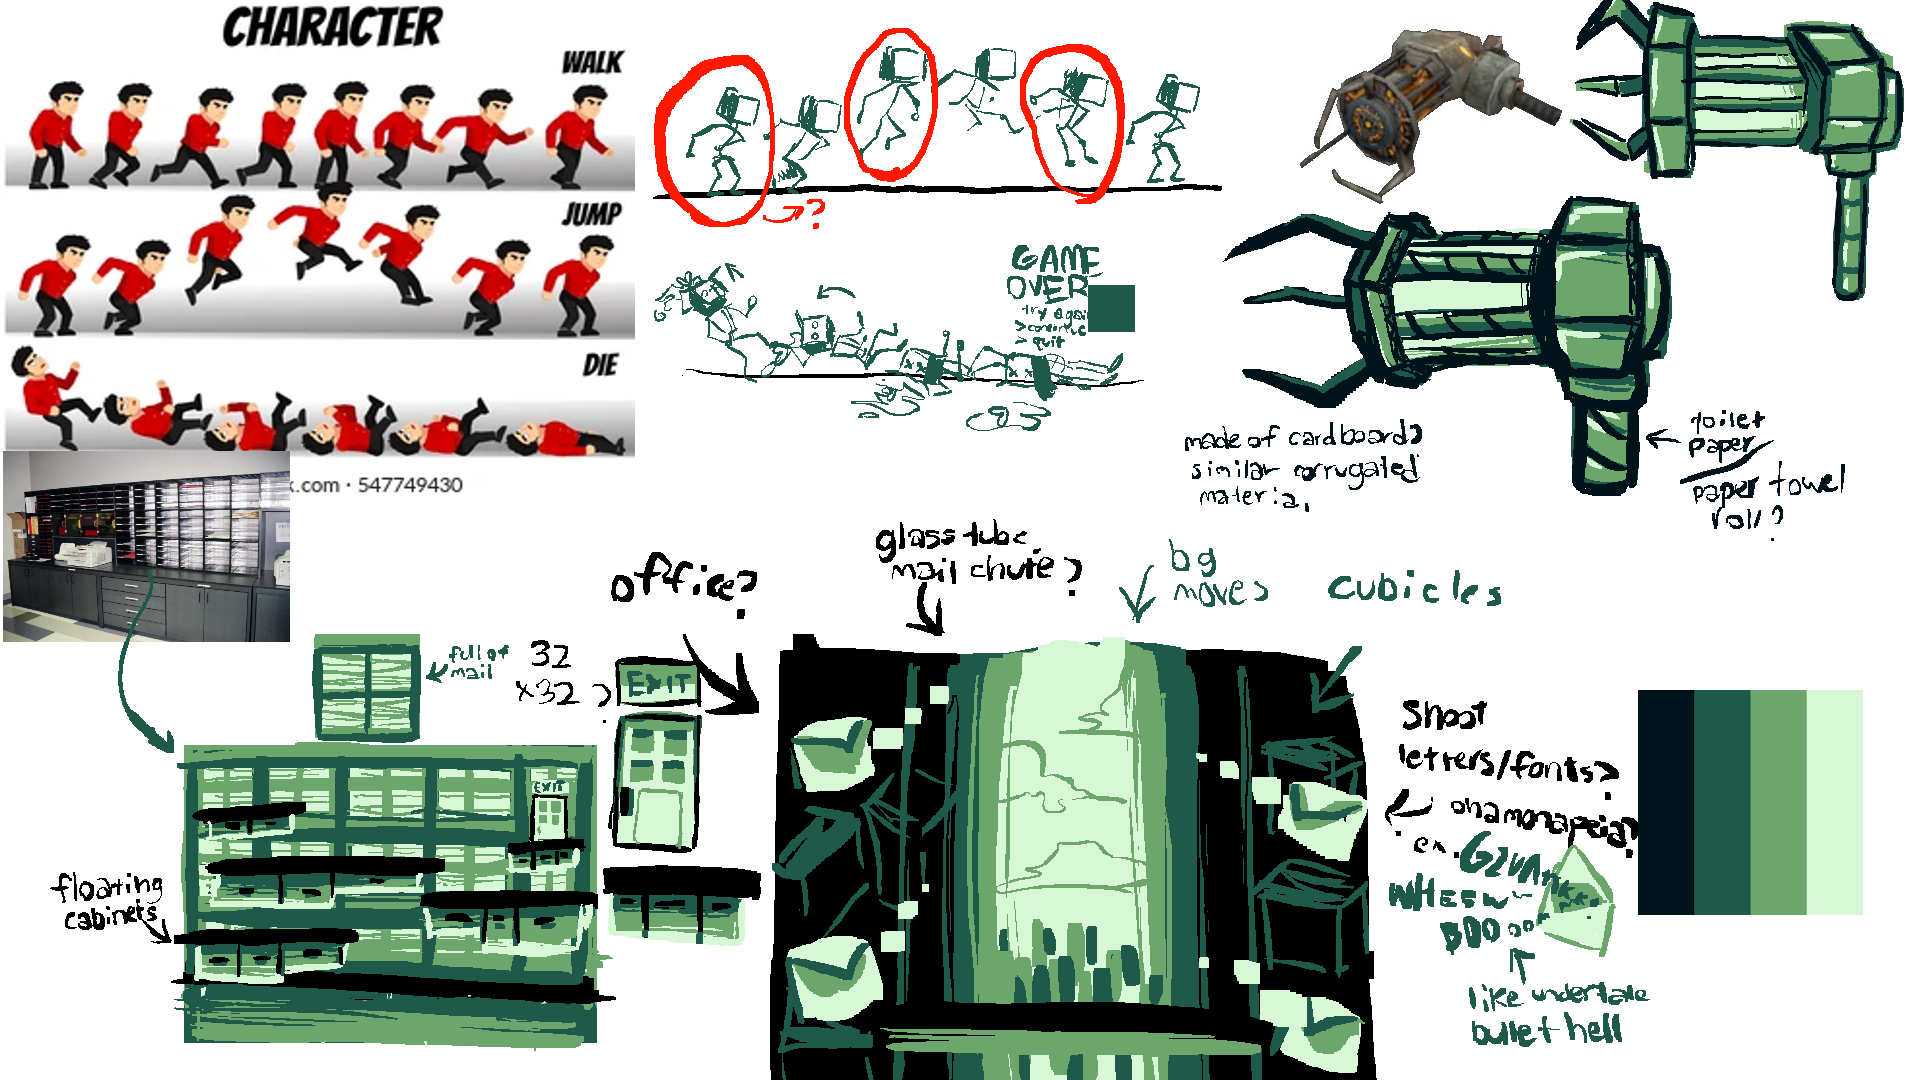 CHARACTER
WALK
JUMP
DIE
k.com · 547749430
?
GAME
OVER
try again
>continue
> quit
made of cardboard?
similar corrugated
material
toilet
paper/
paper towel
roll?
office?
glass tube
mail chute?
bg
moves
cubicles
full of
mail
32
x32?
EXIT
EXIT
floating
cabinets
Shoot
letters/fonts?
onamonapeia?
ex.
WHEEW
BOOOO
like undertale
bullet hell